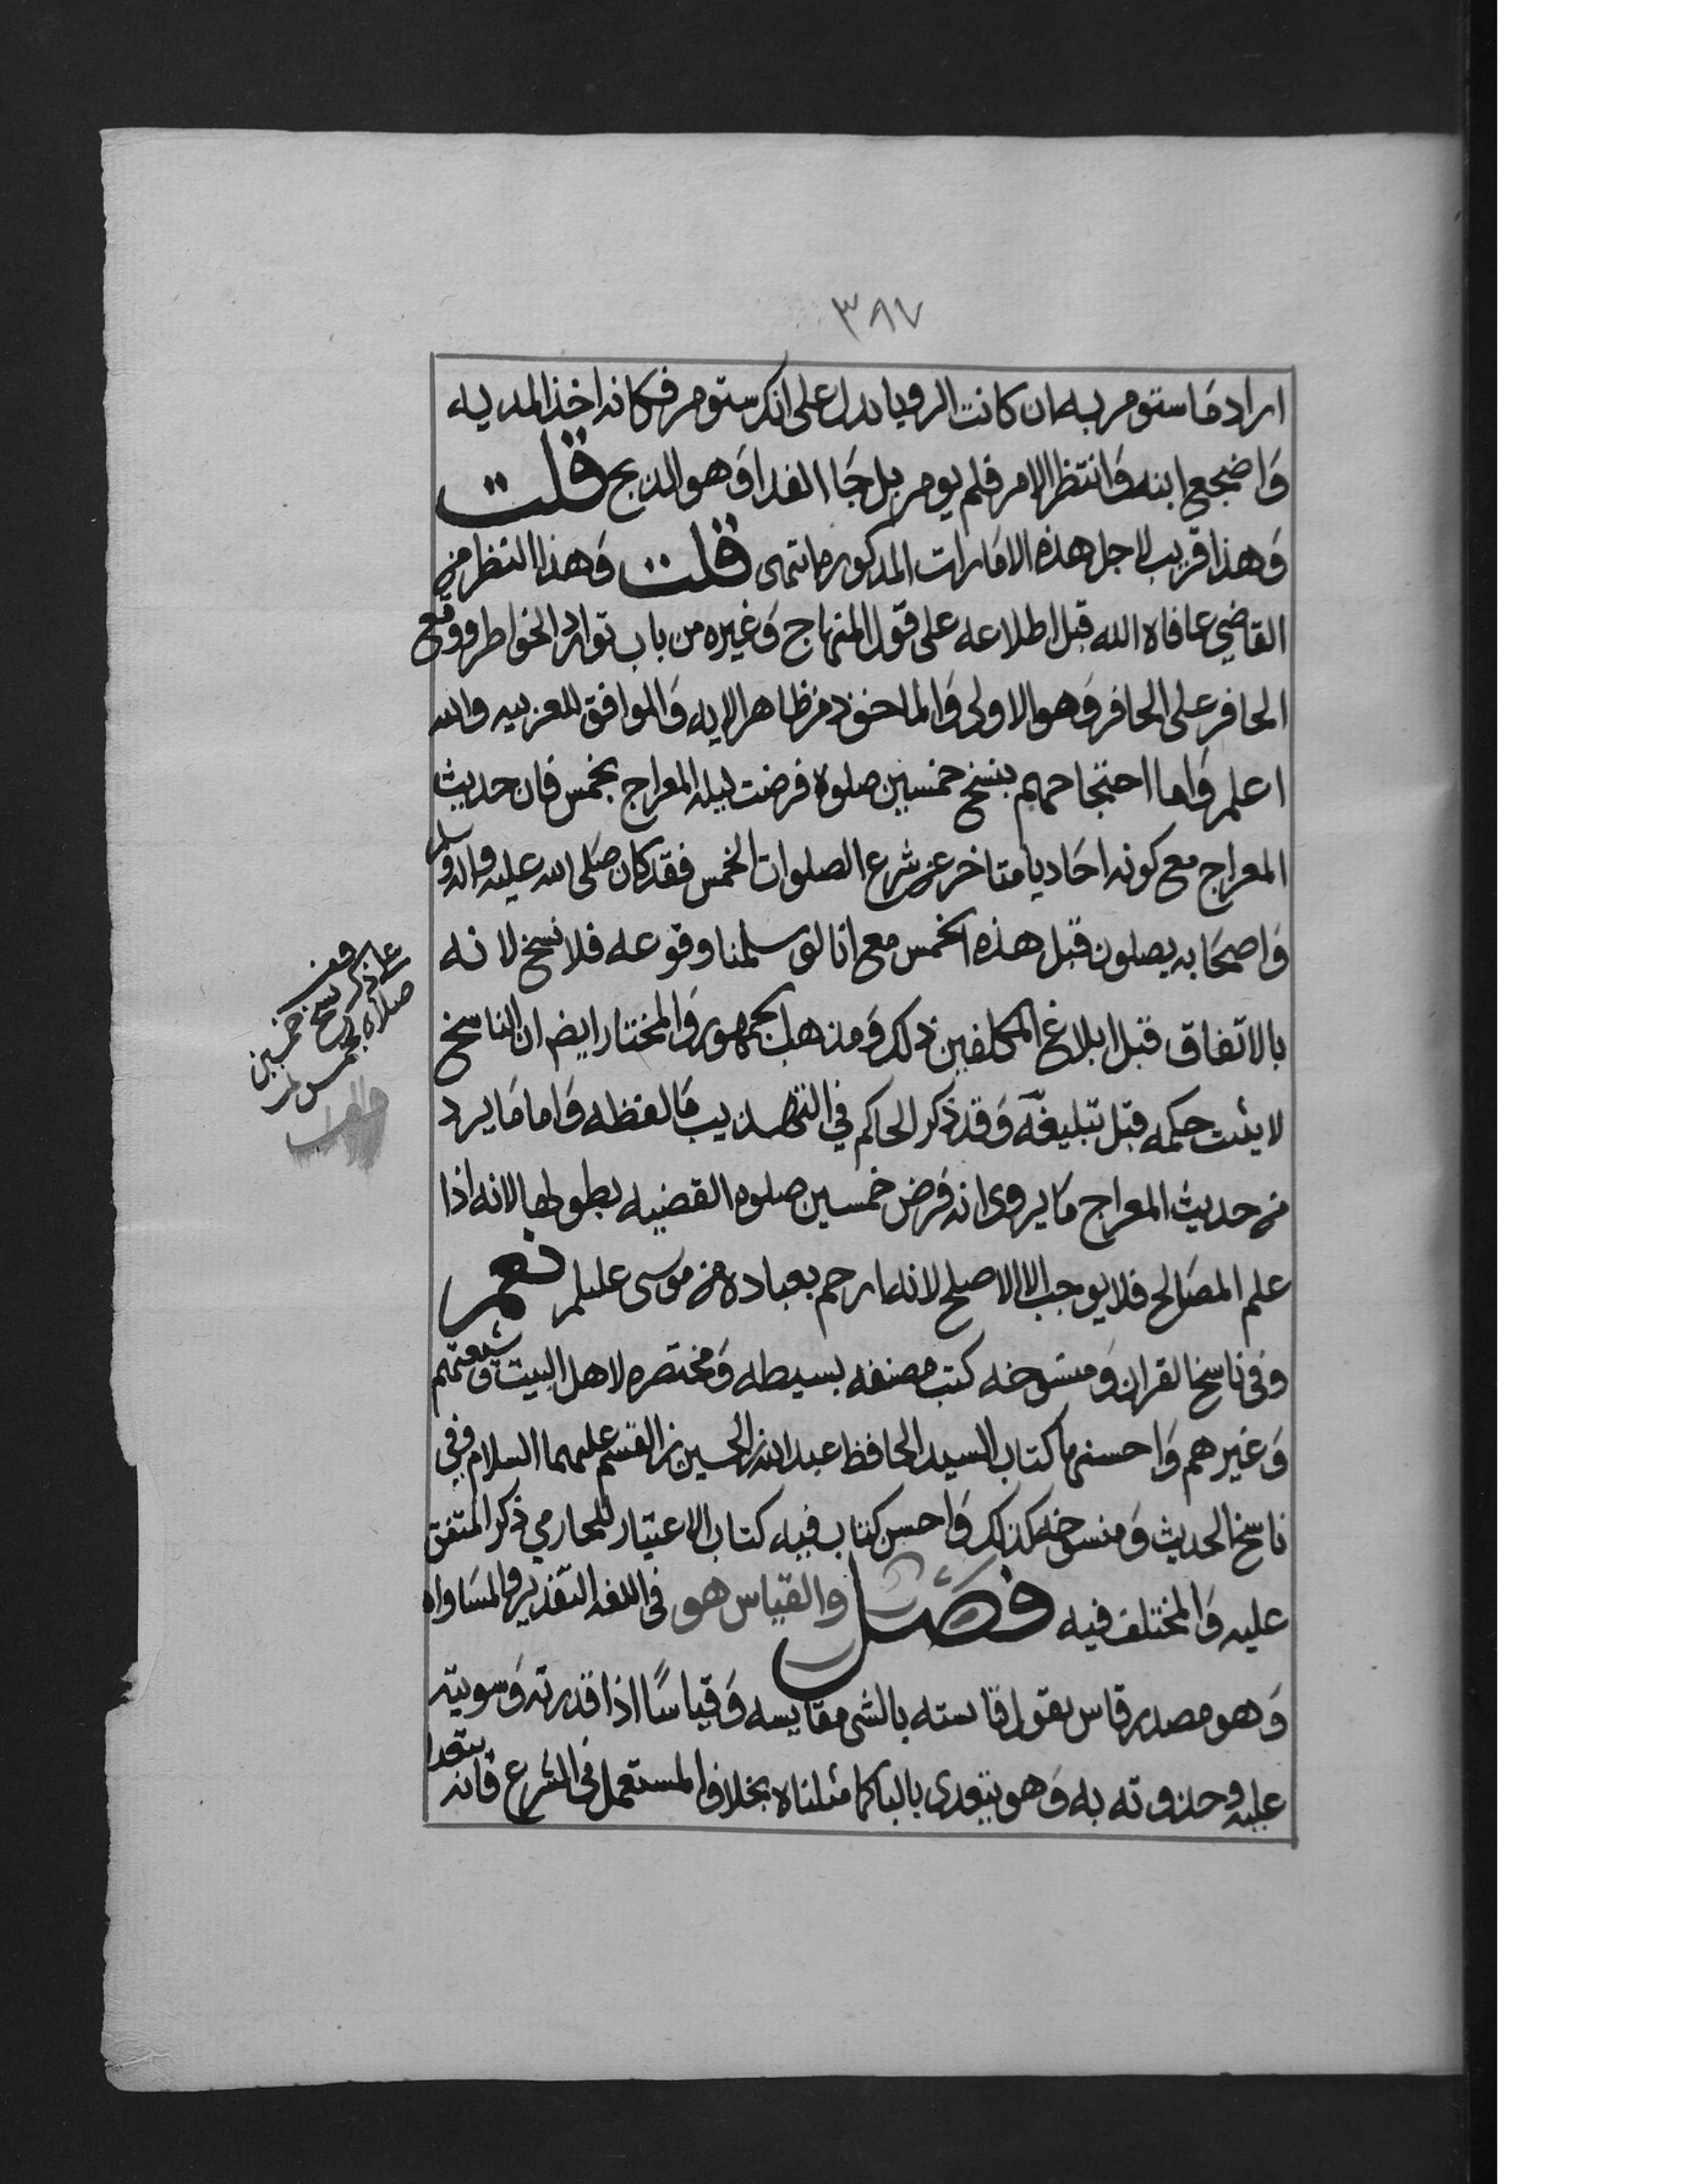 ٣٨٧
اراد ما ستومر به ان كانت الرويا يدل على انك ستومر فكانه اخذ المديه
وَاضجع ابنه وَانتظر الامر فلم يومر بل جَا الفدا وَهو الذبح قلت
وَهذا قريب لاجل هذه الامَارات المذكوره انتهى قلت وَهذا النظر من
القاضي عافاه الله قبل اطلاعه على قول المنهاج وَغيره من باب توارد الخواطر ووقع
الحافر على الحافر وَهو الاولى وَالماخوذ من ظاهر الايه وَالموافق للعربيه والله
اعلم وَاما احتجاحهم بنسخ خمسين صلوة فرضت ليله المعراج بخمس فان حديث
المعراج مع كونه احَاديا متاخر عن شرع الصلوات الخمس فقد كان صَلى الله عليه واله وسلم
وَاصحَابه يصلون قبل هذه الخمس مع انا لو سلمنا وقوعه فلا نسخ لانه
بالاتفاق قبل ابلاغ المكلفين ذلك وَمذهب الجمهور وَالمختار ايضا ان الناسخ
لا يثبت حكمه قبل تبليغه وَقد ذكر الحاكم في التهذيب مَا لفظه وَاما مَا يرد
من حديث المعراج مَا يروى انه فرض خمسين صلوة القضيه بطولها لانه اذا
علم المصَالح فلا يوجب الا الاصلح لانه ارحم بعباده من موسى عليلم نعم
وفي ناسخ القران وَمنسوخه كتب مصنفه بسيطه وَمختصره لاهل البيت وَشيعتهم
وَغيرهم وَاحسنها كتاب السيد الحافظ عبد الله بن الحسين بن القسم عليهما السلام وفي
ناسخ الحديث وَمنسوخه كذلك وَاحسن كتاب فيه كتاب الاعتبار للحازمي ذكر المتفق
عليه وَالمختلف فيه فصَل والقياس هو في اللغه التقدير والمسَاواه
وَهو مصدر قاس يقول قايسته بالشي مقايسه وَقياسًا اذا قدرته وَسويته
عليه وحذوته به وَهو يتعدى بالبا كما مثلناه بخلاف المستعمل في الشرع فانه يتعدا
نسخ خمسين
صلاه بخمس